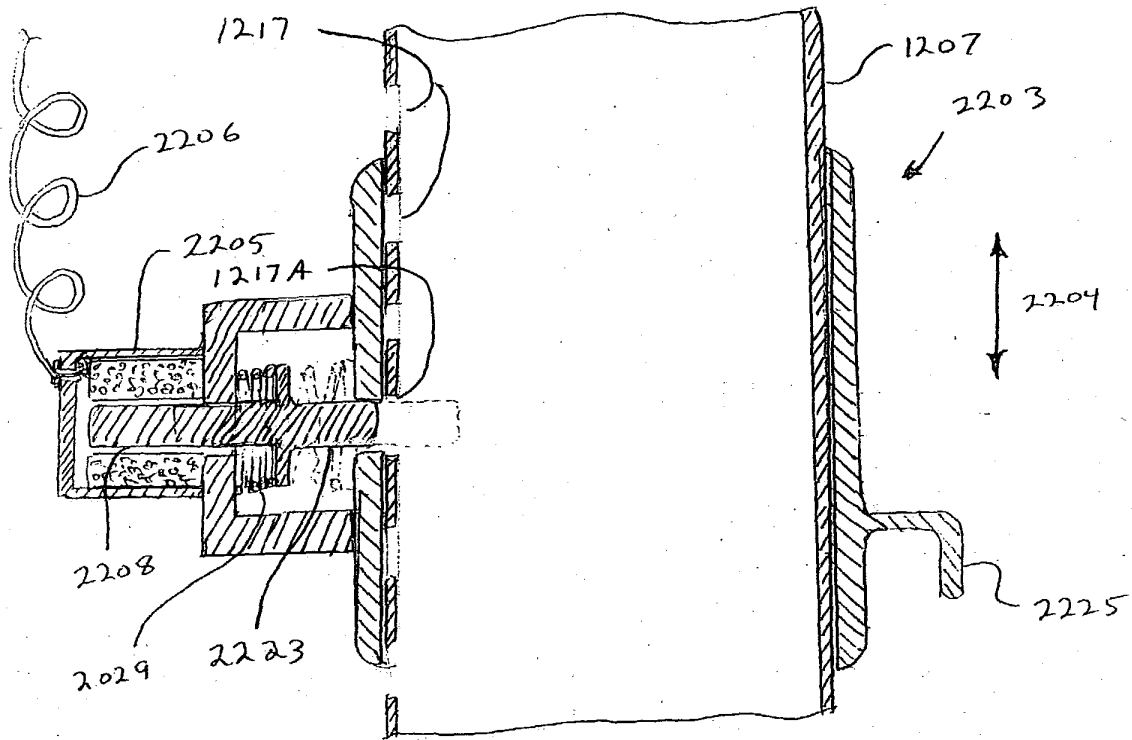 1217
1207
2203
2206
2205
1217A
2204
2208
2029
2223
2225